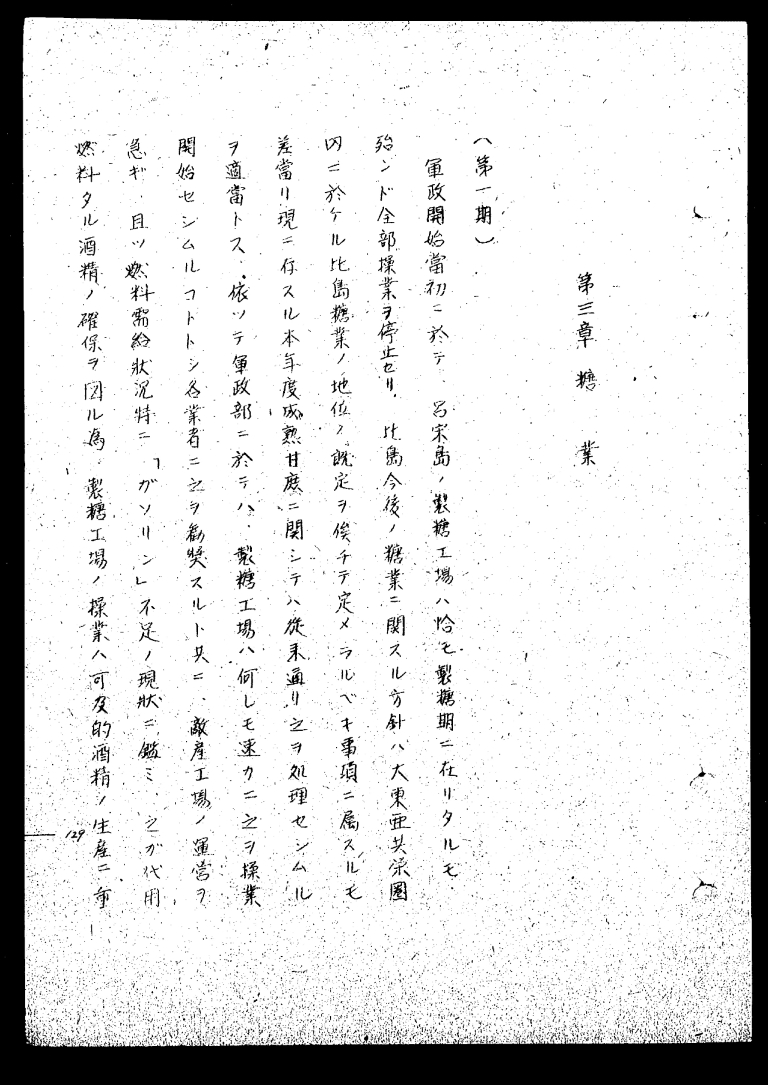 第三章 糖 業
(第一期)
軍政開始當初ニ於テ、呂宋島ノ製糖工場ハ恰モ製糖期ニ在リタルモ、
殆ンド全部操業ヲ停止セリ。比島今後ノ糖業ニ関スル方針ハ大東亜共栄圏
内ニ於ケル比島糖業ノ地位ノ既定ヲ俟チテ定メラルベキ事項ニ属スルモ
差當リ現ニ存スル本年度成熟甘蔗ニ関シテハ従来通リ之ヲ処理セシムル
ヲ適當トス、依ツテ軍政部ニ於テハ、製糖工場ハ何レモ速カニ之ヲ操業
開始セシムルコトトシ各業者ニ之ヲ勧奬スルト共ニ、敵産工場ノ運営ヲ
急ギ、且ツ燃料需給状況特ニ「ガソリン」不足ノ現状ニ鑑ミ、之ガ代用
燃料タル酒精ノ確保ヲ図ル為、製糖工場ノ操業ハ可及的酒精ノ生産ニ重
129